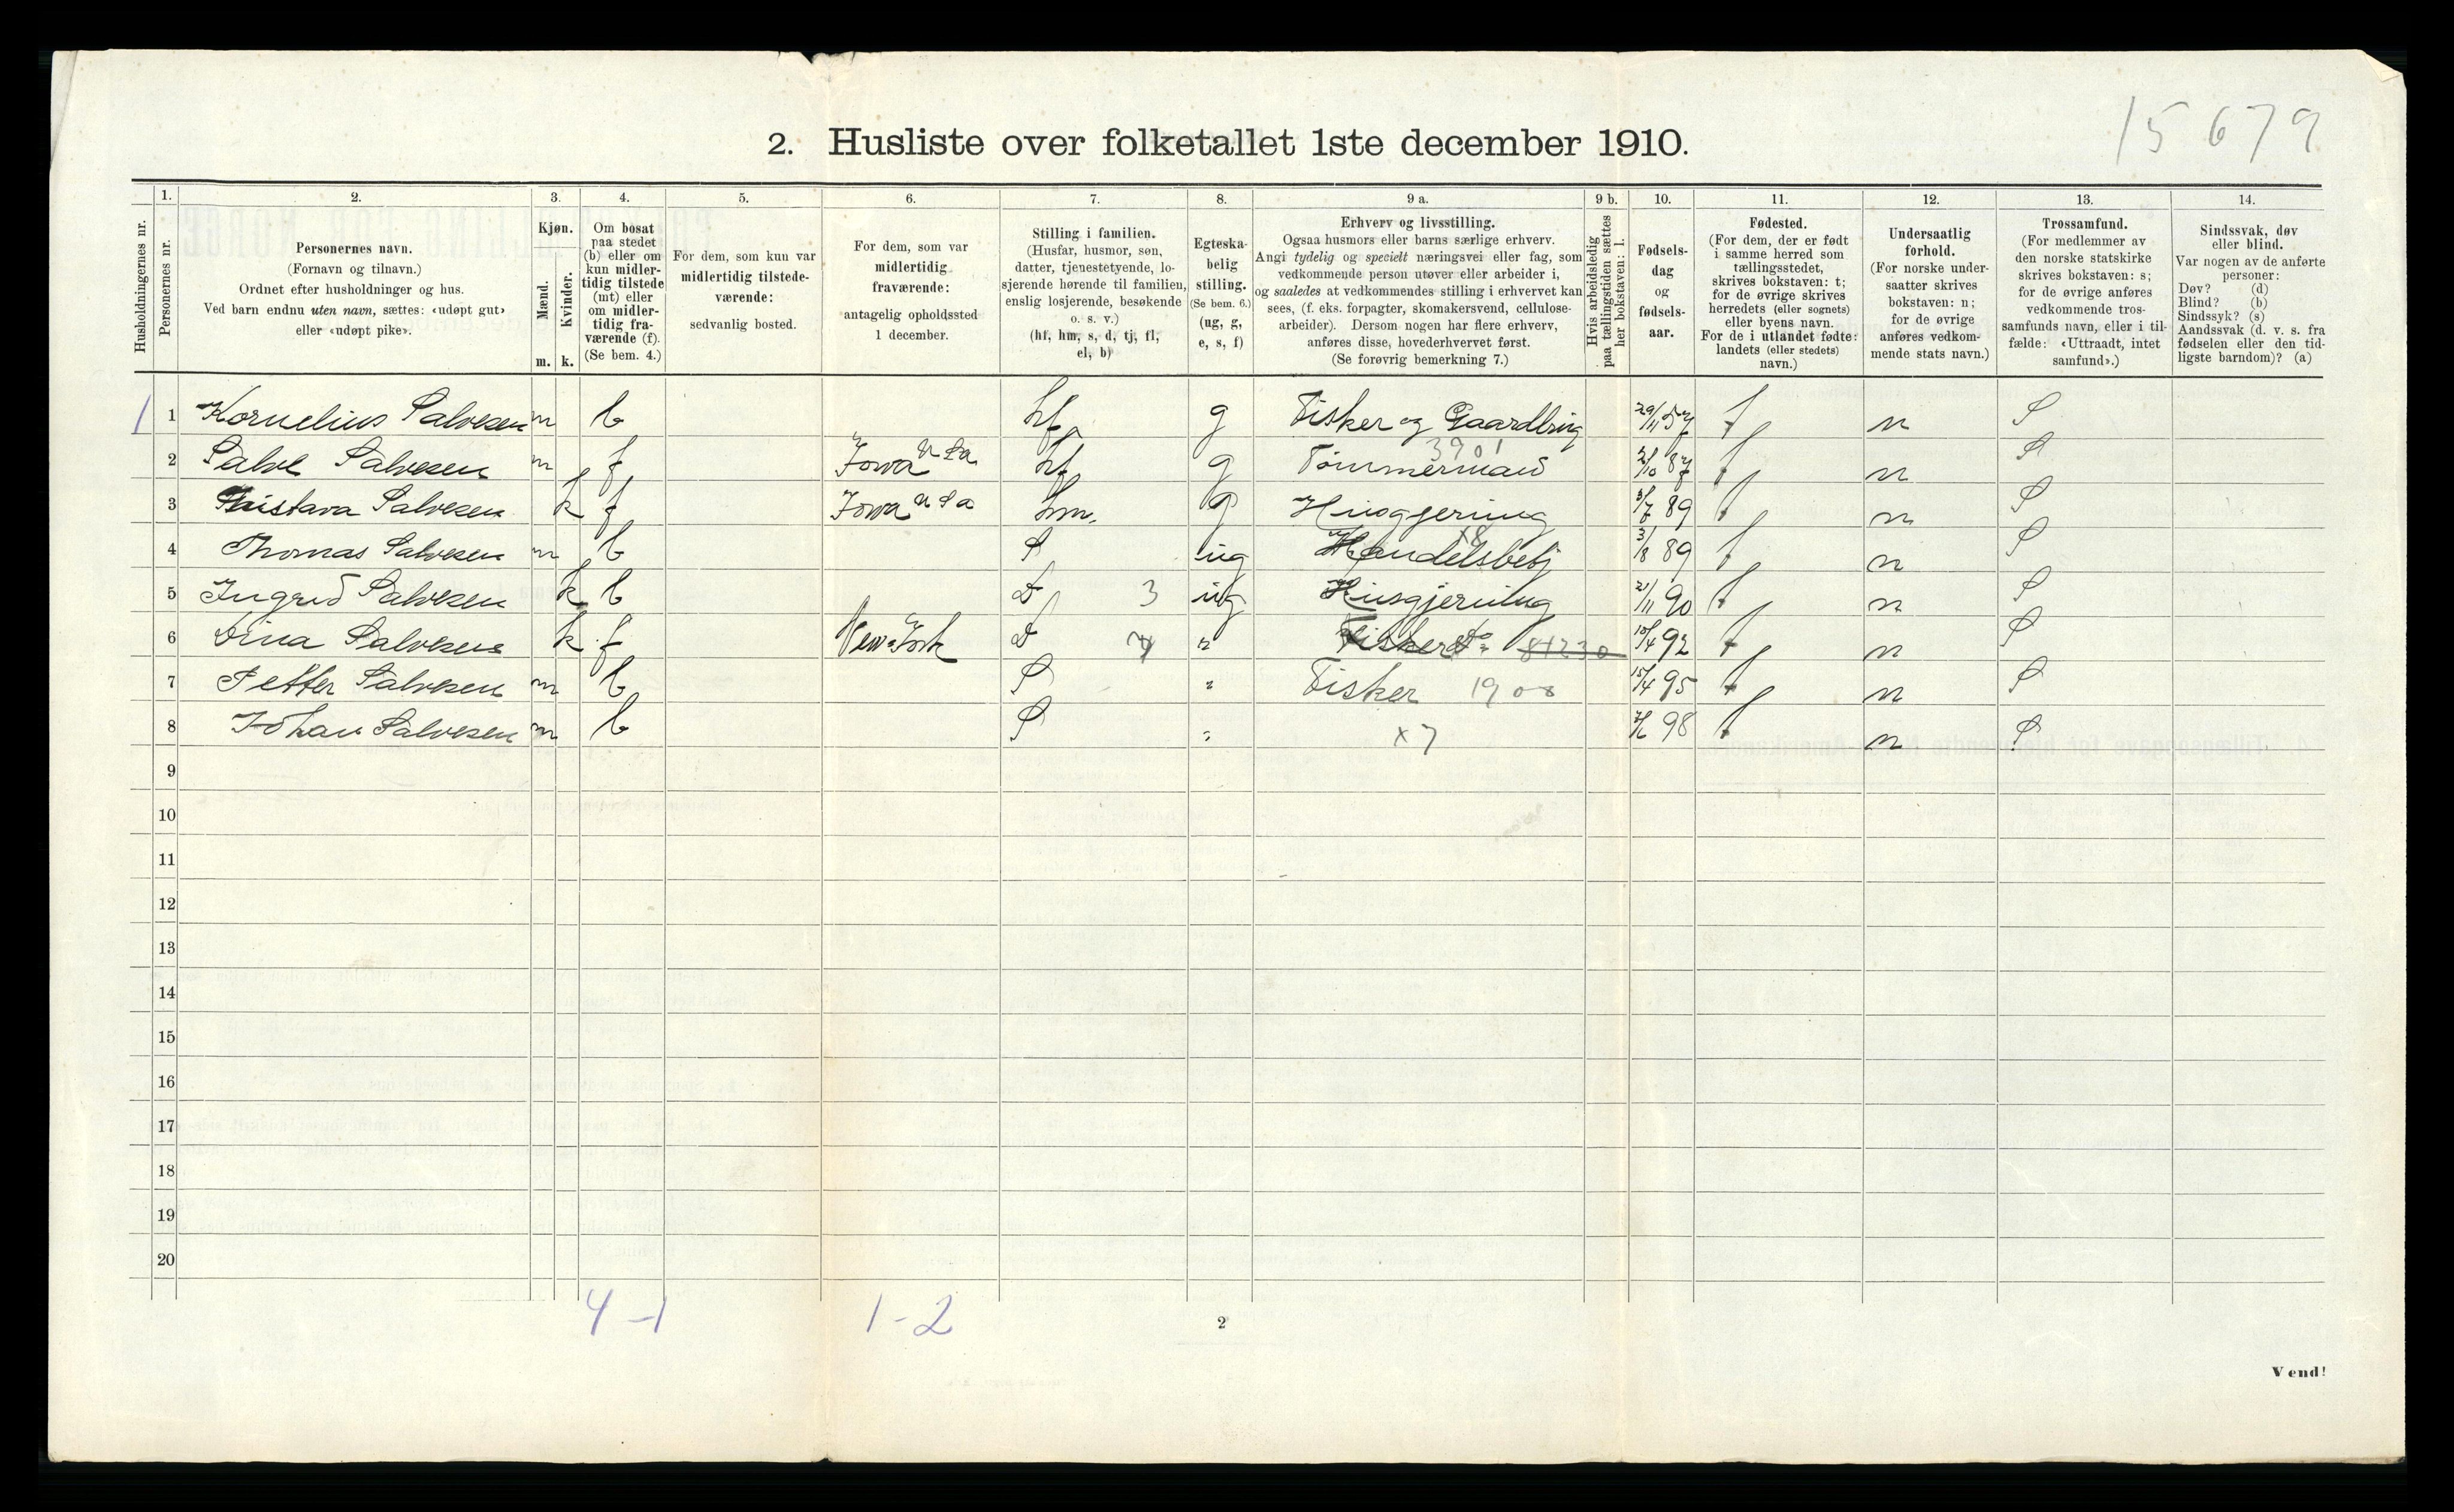 15 679
2. Husliste over folketallet 1ste december 1910.
1. 2. 3. 4. 5. 6. 7. 8. 9 a. 9 b. 10. 11. 12. 13. 14.
Husholdningernes nr.
Personernes nr.
Personernes navn.
(Fornavn og tilnavn.)
Ordnet efter husholdninger og hus.
Ved barn endnu uten navn, sættes: «udøpt gut»
eller «udøpt pike».
Kjøn.
Mænd.
Kvinder.
m. k.
Om bosat
paa stedet
(b) eller om
kun midler-
tidig tilstede
(mt) eller
om midler-
tidig fra-
værende (f).
(Se bem. 4.)
For dem, som kun var
midlertidig tilstede-
værende:
sedvanlig bosted.
For dem, som var
midlertidig
fraværende:
antagelig opholdssted
1 december.
Stilling i familien.
(Husfar, husmor, søn,
datter, tjenestetyende, lo-
sjerende hørende til familien,
enslig losjerende, besøkende
o. s. v.)
(hf, hm, s, d, tj, fl,
el, b)
Egteska-
belig
stilling.
(Se bem. 6.)
(ug, g,
e, s, f)
Erhverv og livsstilling.
Ogsaa husmors eller barns særlige erhverv.
Angi tydelig og specielt næringsvei eller fag, som
vedkommende person utøver eller arbeider i,
og saaledes at vedkommendes stilling i erhvervet kan
sees, (f. eks. forpagter, skomakersvend, cellulose-
arbeider). Dersom nogen har flere erhverv,
anføres disse, hovederhvervet først.
(Se forøvrig bemerkning 7.)
Hvis arbeidsledig
paa tællingstiden sættes
her bokstaven: l.
Fødsels-
dag
og
fødsels-
aar.
Fødested.
(For dem, der er født
i samme herred som
tællingsstedet,
skrives bokstaven: t;
for de øvrige skrives
herredets (eller sognets)
eller byens navn.
For de i utlandet fødte:
landets (eller stedets)
navn.)
Undersaatlig
forhold.
(For norske under-
saatter skrives
bokstaven: n;
for de øvrige
anføres vedkom-
mende stats navn.)
Trossamfund.
(For medlemmer av
den norske statskirke
skrives bokstaven: s;
for de øvrige anføres
vedkommende tros-
samfunds navn, eller i til-
fælde: «Uttraadt, intet
samfund».)
Sindssvak, døv
eller blind.
Var nogen av de anførte
personer:
Døv? (d)
Blind? (b)
Sindssyk? (s)
Aandssvak (d. v. s. fra
fødselen eller den tid-
ligste barndom)? (a)
1 1 Kornelius Salvesen m b hf g Fisker og Gaardbrug 29/11 57 t n S
2 Salve Salvesen m f Iowa U Sa hf g Tømmermand 3901 2/10 87 t n S
3 Salvesen k f Iowa U Sa hm. g Husgjerning 3/7 89 t n S
4 Thomas Salvesen m b S ug Handelsbetj x8 3/8 89 t n S
5 Ingrid Salvesen k b D 3 ug Husgjerning 21/11 90 t n S
6 Dina Salvesen k f New York D " Fisker do 81230 10/4 92 t n S
7 Petter Salvesen m b S " Fisker 1908 15/4 95 t n S
8 Johan Salvesen m b S " x7 98 t n S
9
10
11
12
13
14
15
16
17
18
19
20
4-1 1-2
2
Vend!